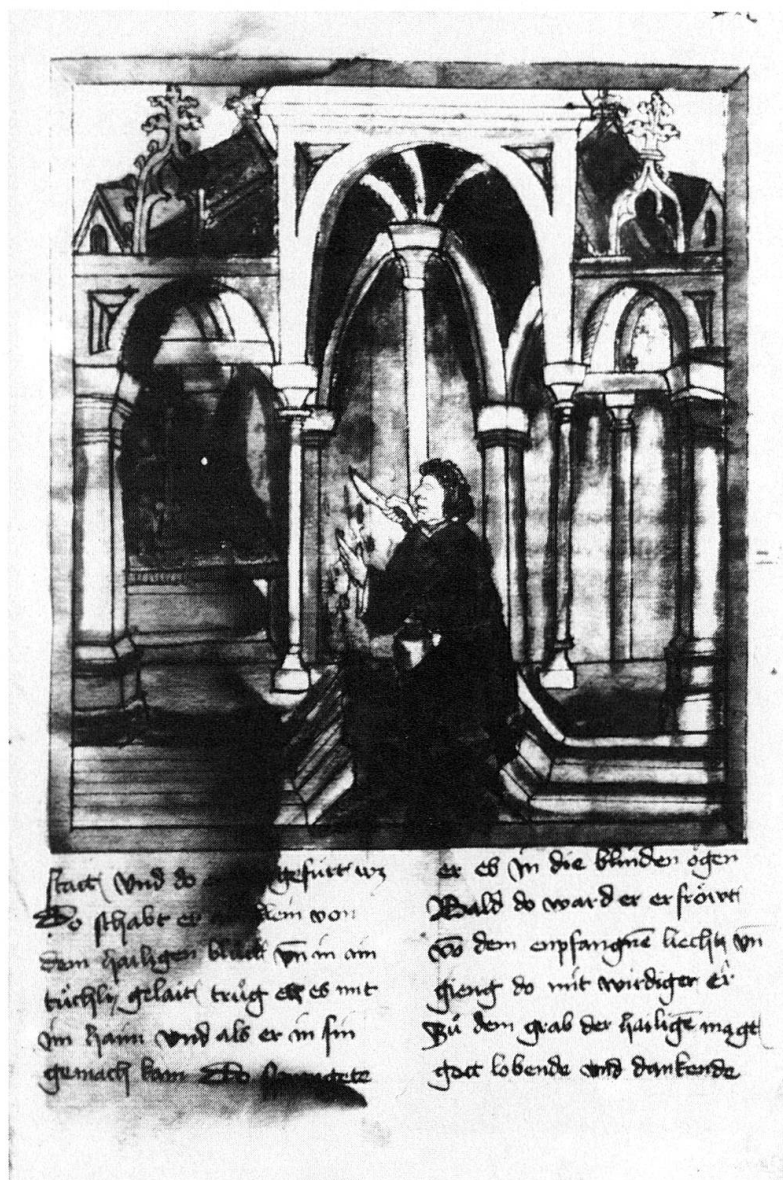 statt und do er gefürt wz
Do schabt er ain klein von
dem hailigen blůtt vn̄ in ain
tůchly gelait trůg er es mit
im haim und als er in sin
gemach kam Do
er eß in die blinden ögen
Bald do ward er erfröwt
vō dem enpfangnē liecht vn̄
gieng do mit wirdiger er
Zů dem grab der hailigē magt
gott lobende und dankende